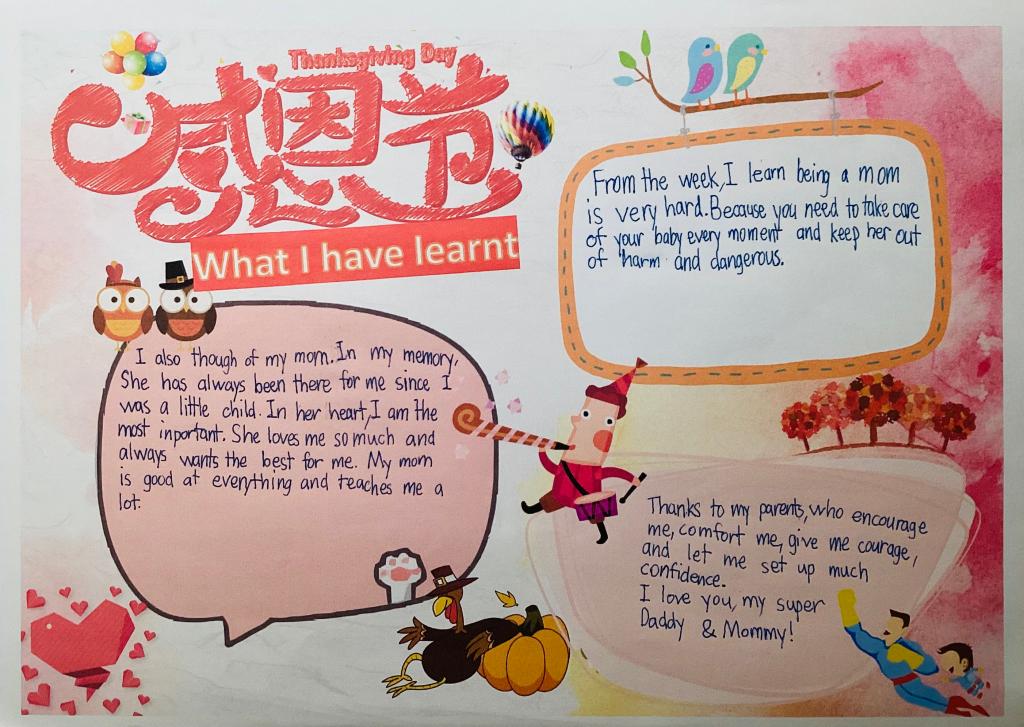 Thanksgiving Day
感恩节
What I have learnt
From the week, I learn being a mom
is very hard. Because you need to take care
of your baby every moment and keep her out
of harm and dangerous.
I also though of my mom. In my memory,
She has always been there for me since I
was a little child. In her heart, I am the
most inportant. She loves me so much and
always wants the best for me. My mom
is good at everything and teaches me a
lot.
Thanks to my parents, who encourage
me, comfort me, give me courage,
and let me set up much
confidence.
I love you, my super
Daddy & Mommy!